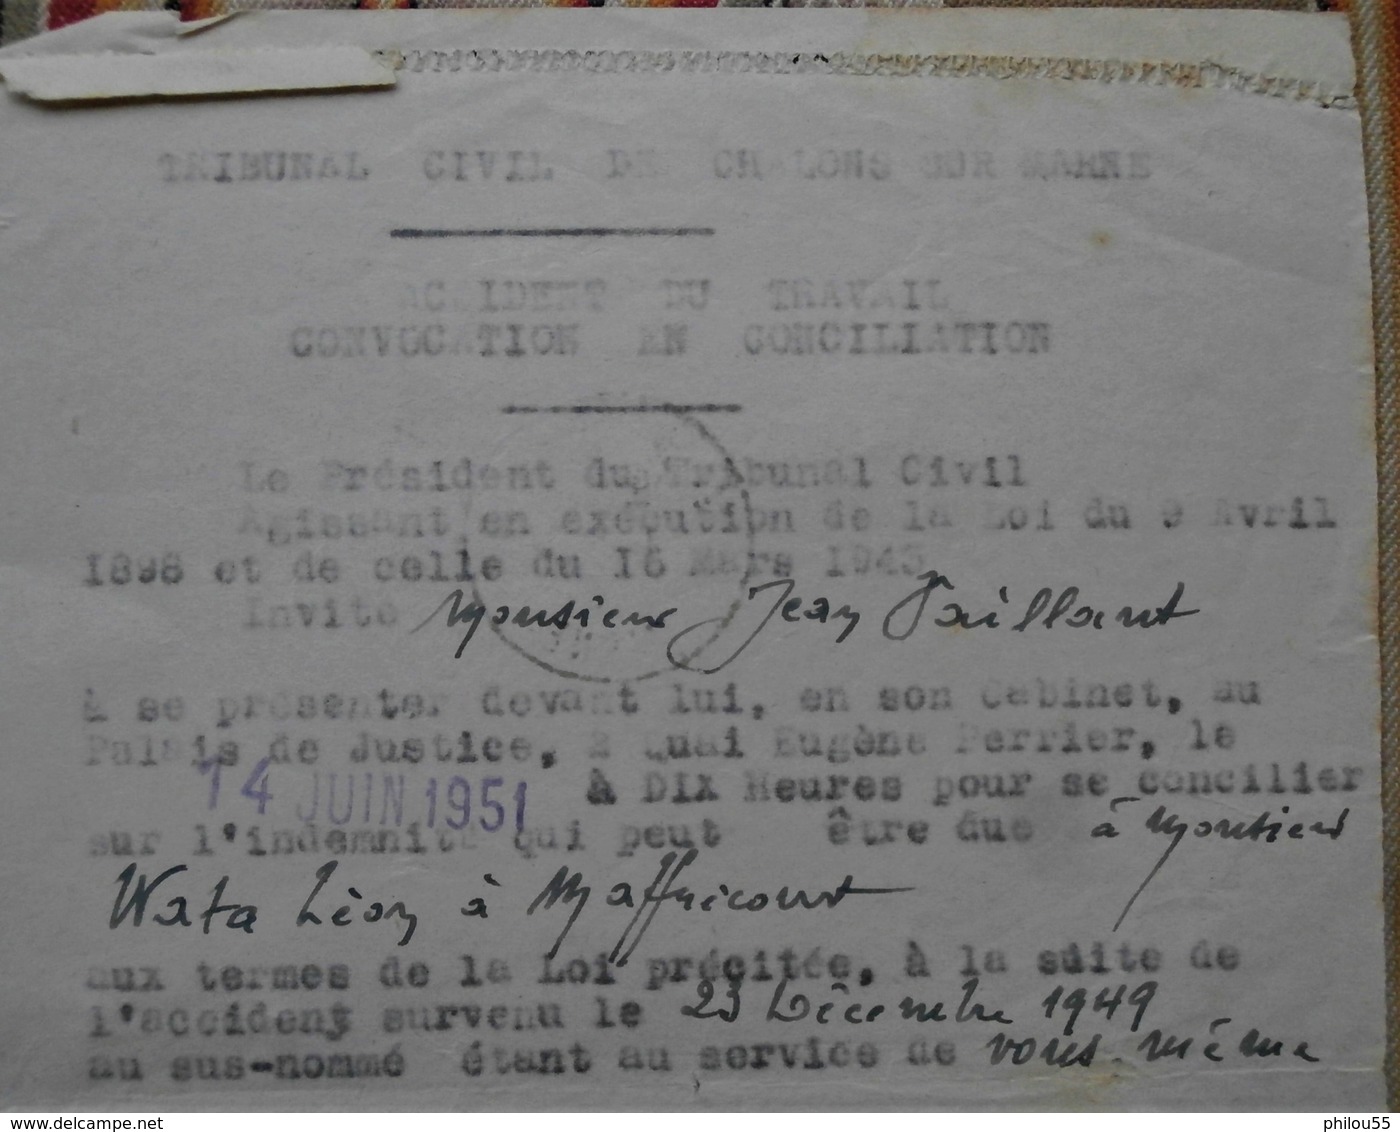 TRIBUNAL CIVIL DE CHALONS SUR MARNE
ACCIDENT DU TRAVAIL
CONVOCATION EN CONCILIATION
Le Président du Tribunal Civil
Agissant en exécution de la Loi du 9 Avril
1898 et de celle du 16 Mars 1943
Invite Monsieur Jean Vaillant
à se présenter devant lui, en son Cabinet, au
Palais de Justice, 2 Quai Eugène Perrier, le
14 JUIN 1951 à DIX Heures pour se concilier
sur l'indemnité qui peut être due à Monsieur
Wata Léon à Maffricourt
aux termes de la Loi précitée, à la suite de
l'accident survenu le 23 Décembre 1949
au sus-nommé étant au service de vous même
www.delcampe.net
philou55